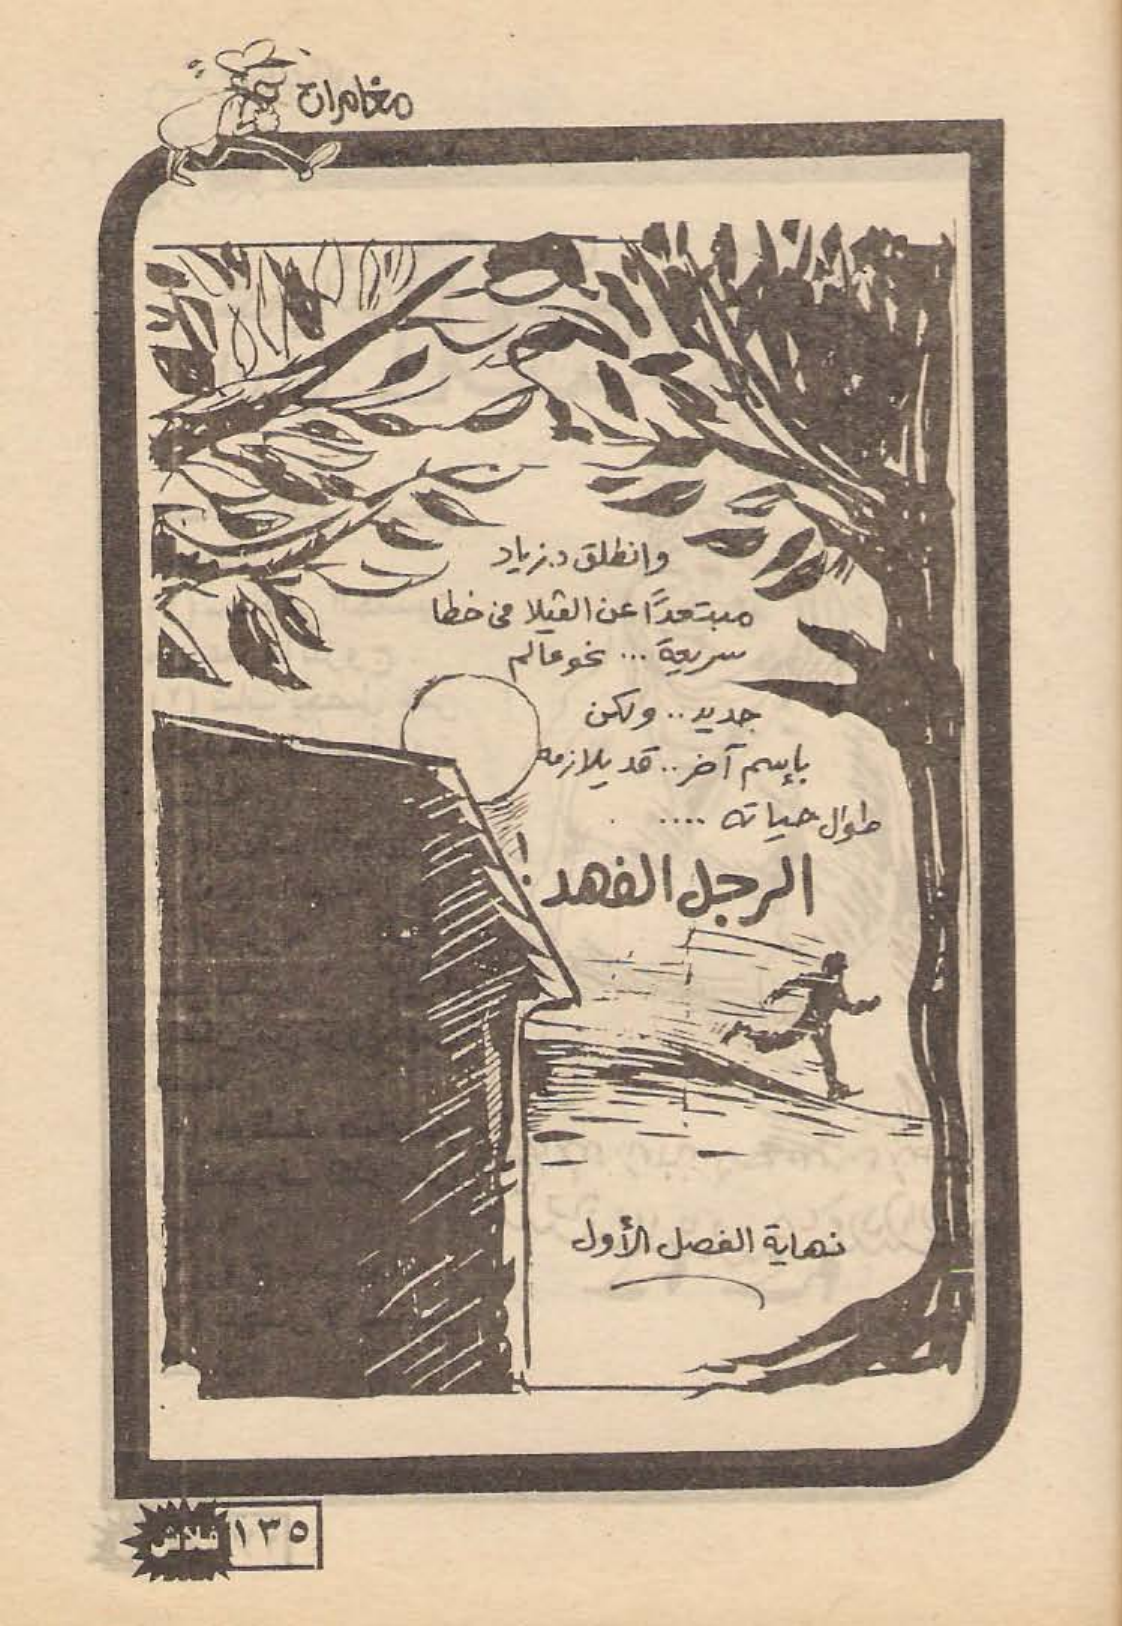 مغامرات
وانطلق د. زياد
مبتعدًا عن الڤيلا فى خطا
سريعة ... نحو عالم
جديد .. ولكن
بإسم آخر .. قد يلازمه
طوال حياته ....
الرجل الفهد !
نهاية الفصل الأول
فلاش ١٣٥